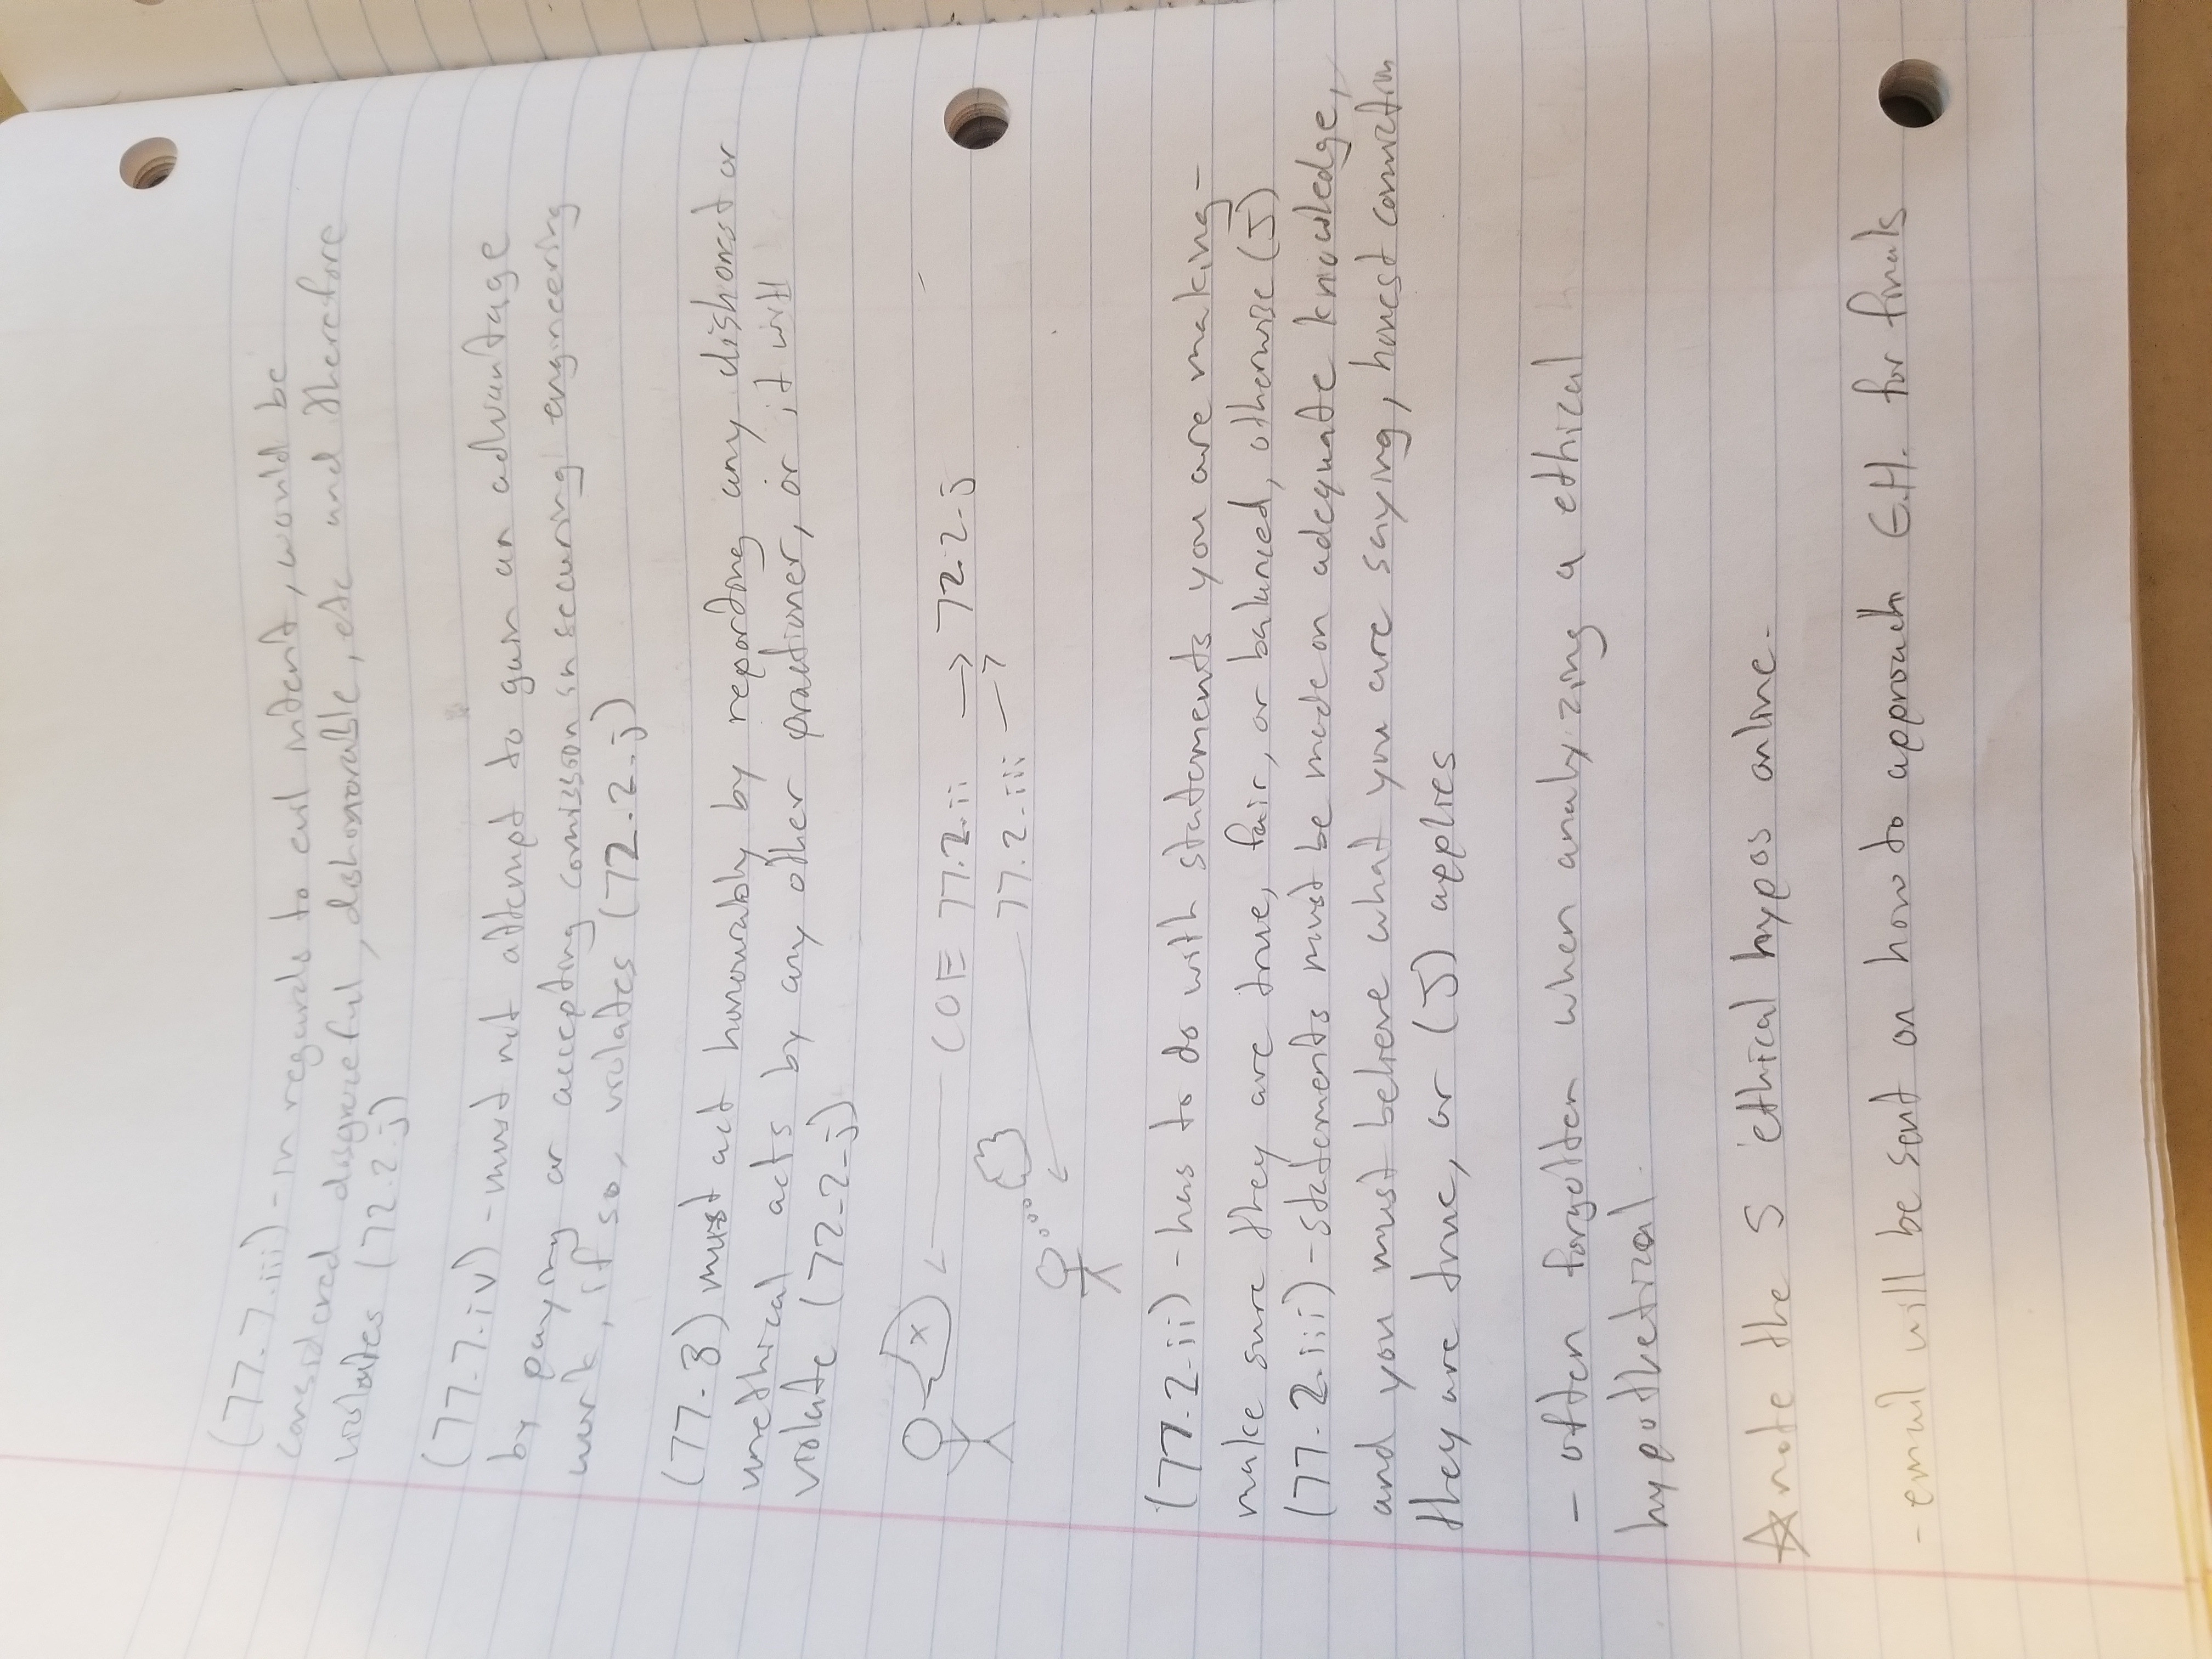 (77.7.iii) - in regards to evil intent, would be
considered disgraceful, dishonorable, etc and therefore
violates (72.2.j)
(77.7.iv) - must not attempt to gain an advantage
by paying or accepting comission in securing engineering
work, if so, violates (72.2.j)
(77.8) must act honourably by reporting any dishonest or
unethical acts by any other practioner, or it will
violate (72-2-j)
x COE 77.2.ii → 72.2.j
77.2.iii →
(77.2.ii) - has to do with statements you are making -
make sure they are true, fair, or balanced, otherwise (J)
(77.2.iii) - statements must be made on adequate knowledge,
and you must believe what you are saying, honest conviction
they are true, or (J) applies
- often forgotten when analyzing a ethical
hypothetical.
☆ note the 5 ethical hypos online.
- email will be sent on how to approach E.H. for finals